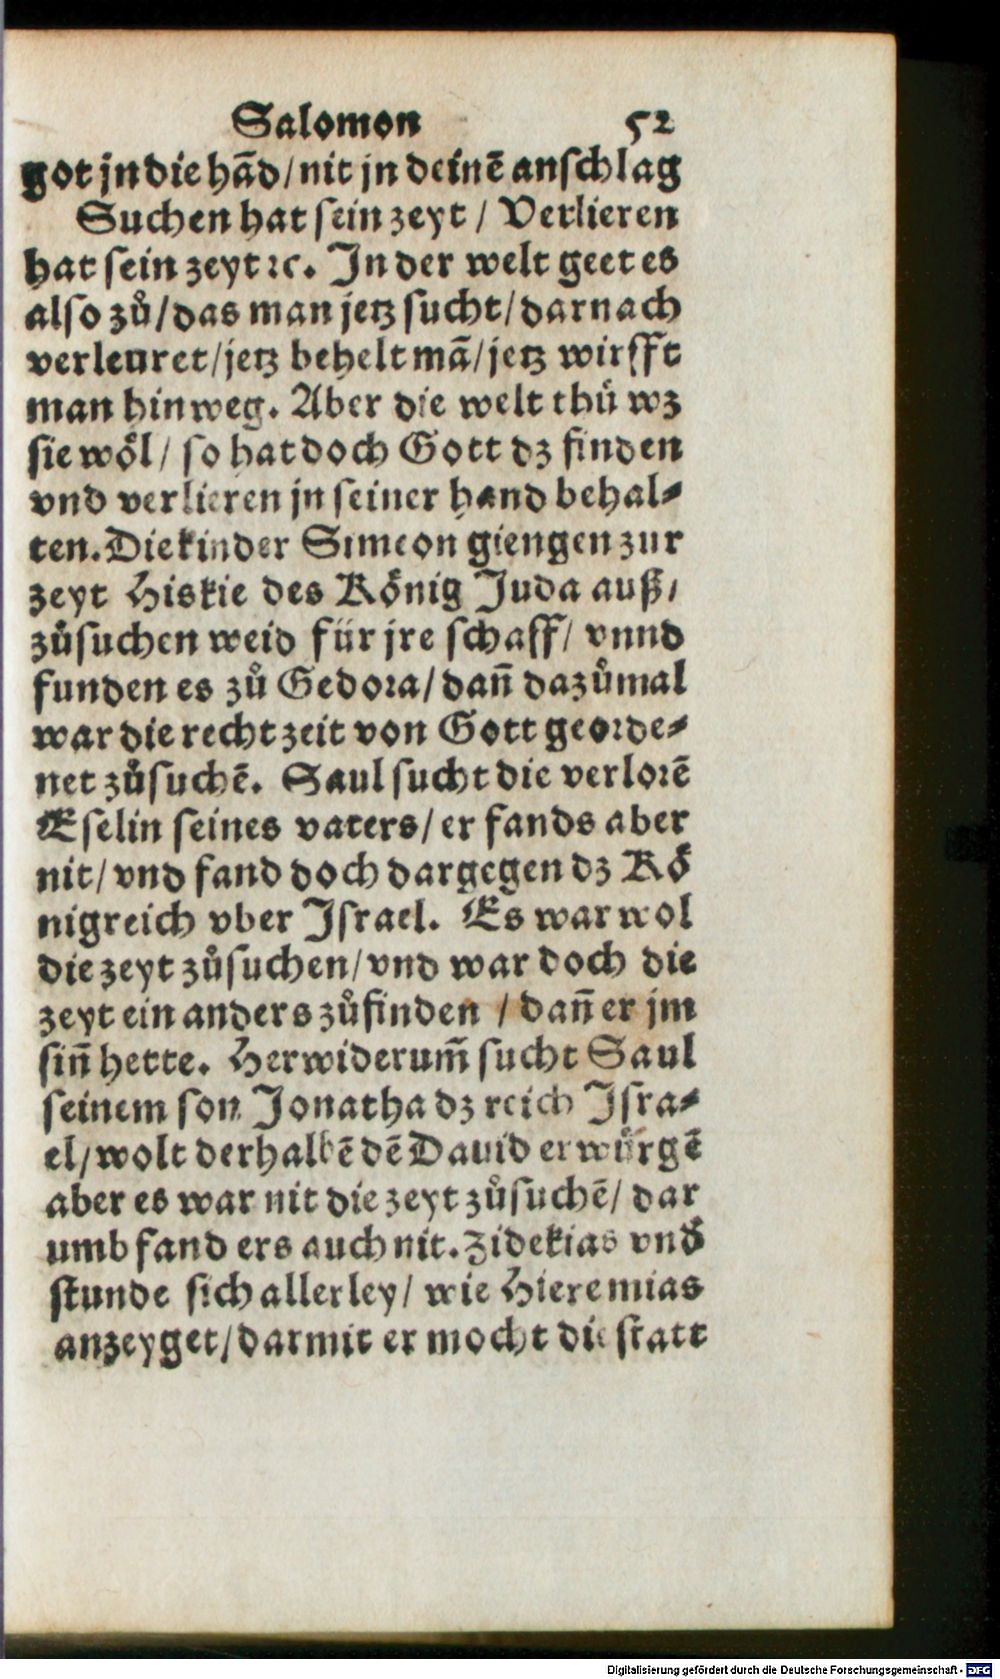 Salomon 52
got jn die hãd/nit jn deinẽ anschlag
Suchen hat sein zeyt / Verlieren
hat sein zeyt ꝛc. In der welt geet es
also zů/das man jetz sucht/darnach
verleuret/jetz behelt mã/jetz wirfft
man hinweg. Aber die welt thů wz
sie wöl/ so hat doch Gott dz finden
vnd verlieren jn seiner hand behal⸗
ten. Die kinder Simeon giengen zur
zeyt Hiskie des König Juda auß/
zůsuchen weid für jre schaff/ vnnd
funden es zů Gedora/dañ dazůmal
war die recht zeit von Gott georde⸗
net zůsuchẽ. Saul sucht die verlorẽ
Eselin seines vaters/er fands aber
nit/vnd fand doch dargegen dz Kö
nigreich vber Israel. Es war wol
die zeyt zůsuchen/vnd war doch die
zeyt ein anders zůfinden / dañ er jm
siñ hette. Herwiderum̃ sucht Saul
seinem son Jonatha dz reich Isra⸗
el/wolt derhalbẽ dẽ Dauid erwürgẽ
aber es war nit die zeyt zůsuchẽ/ dar
umb fand ers auch nit. Zidekias vnd̕
stunde sich allerley/ wie Hieremias
anzeyget/darmit er mocht die statt
Digitalisierung gefördert durch die Deutsche Forschungsgemeinschaft - DFG